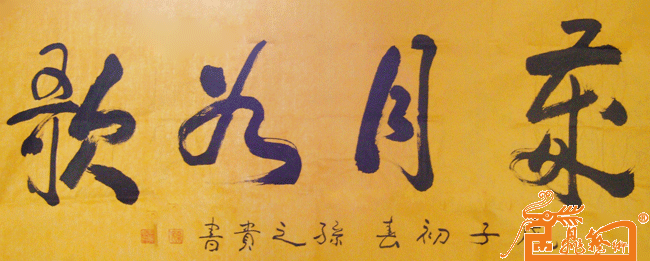 歲月如歌
子初春 孫之貴書